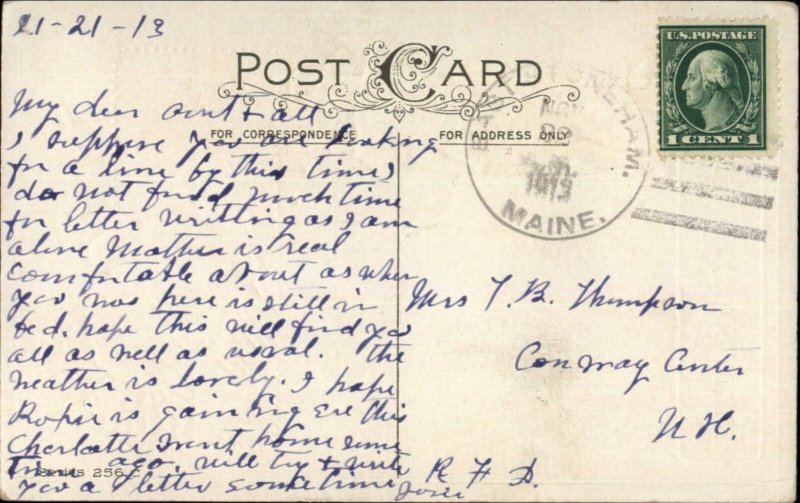 11-21-13
POST CARD
FOR CORRESPONDENCE
FOR ADDRESS ONLY
U.S. POSTAGE
1 CENT 1
EAST STONEHAM.
NOV
1913
MAINE.
My dear aunt & all
I suppose you are looking
for a line by this time I
do not find much time
for letter writting as I am
alone Mother is real
comfortable about as when
you was here is still in
bed. hope this will find you
all as well as usual. the
weather is lovely. I hope
is gaining ere this
Charlotte went home some
time ago. will try & write
you a letter sometime
Josie
Series 256 C
Mrs T. B. Thompson
Conway Center
N H.
R F D.